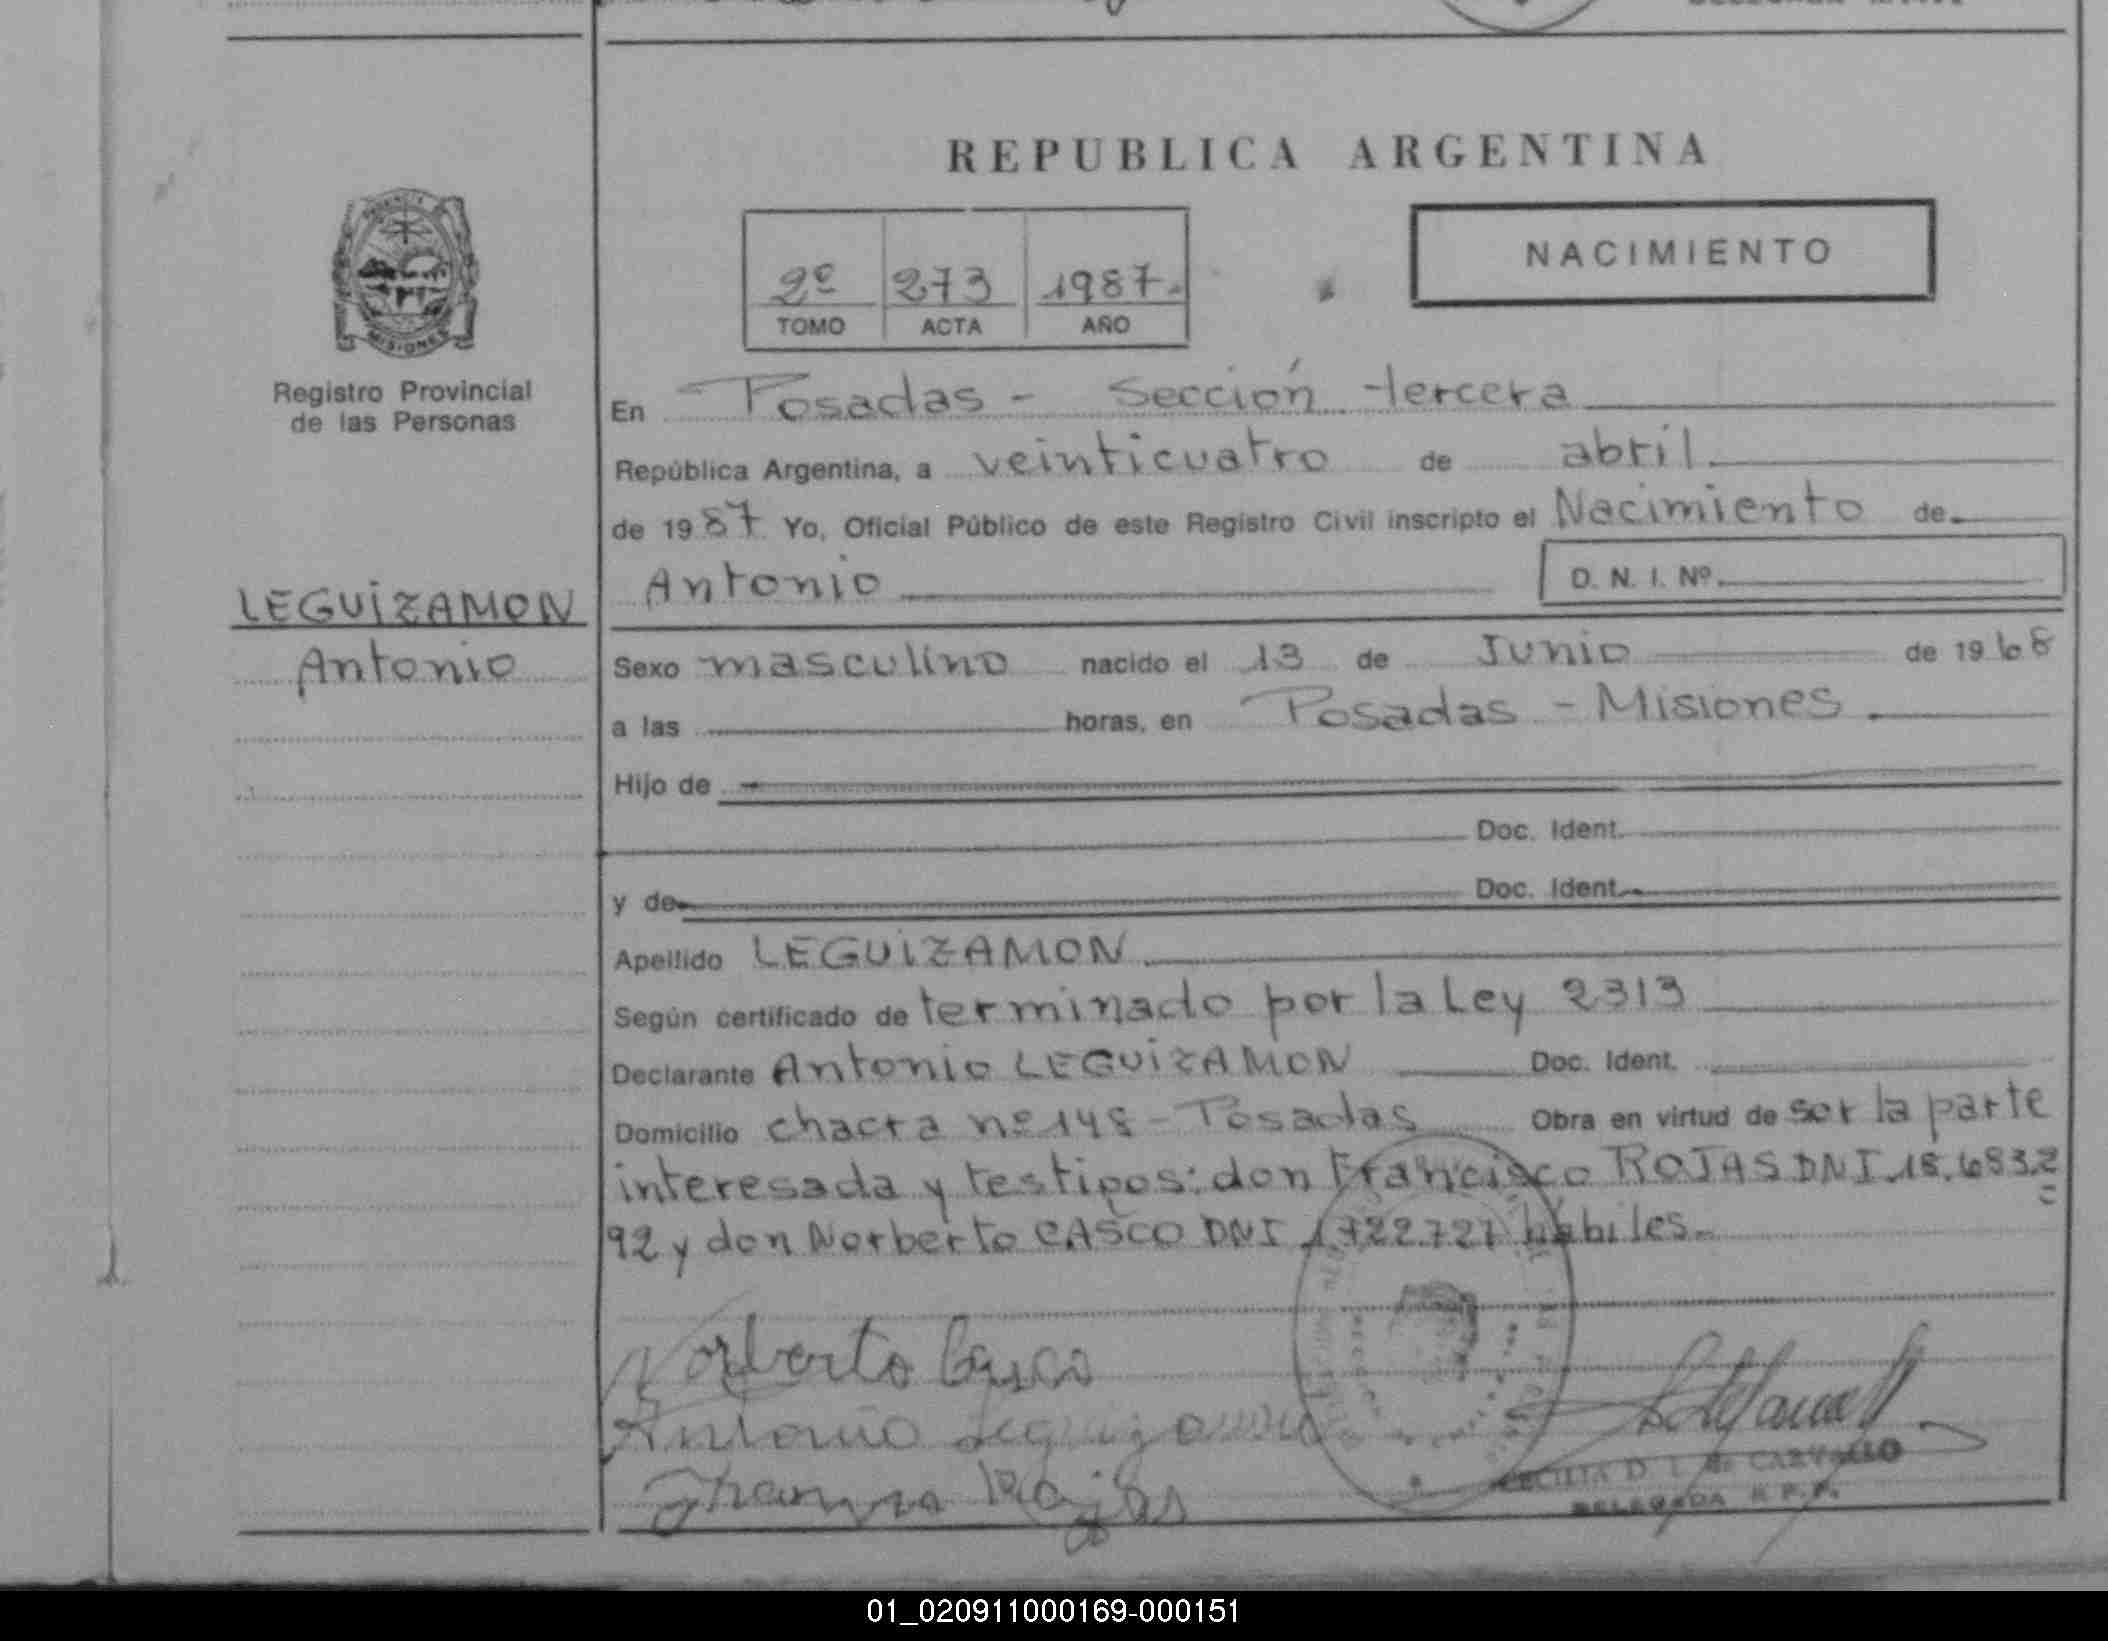 REPUBLICA ARGENTINA
NACIMIENTO
2º 273 1987.
TOMO ACTA AÑO
MISIONES
Registro Provincial
de las Personas
LEGUIZAMON
Antonio
En Posadas - Sección tercera
República Argentina, a veinticuatro de abril.
de 1987 Yo, Oficial Público de este Registro Civil inscripto el Nacimiento de
Antonio D. N. I. Nº
Sexo masculino nacido el 13 de Junio de 1968
a las horas, en Posadas - Misiones
Hijo de
Doc. Ident.
y de Doc. Ident.
Apellido LEGUIZAMON
Según certificado de terminado por la Ley 2313
Declarante Antonio LEGUIZAMON Doc. Ident.
Domicilio chacra nº 148 - Posadas Obra en virtud de ser la parte
interesada y testigos: don Francisco ROJAS DNI.18.683.2
92 y don Norberto CASCO DNI 1722.727 hábiles.
Norberto Casco
Antonio Leguizamon
Rojas
CECILIA D. L. de CARVALLO
DELEGADA R.P.P.
01_020911000169-000151